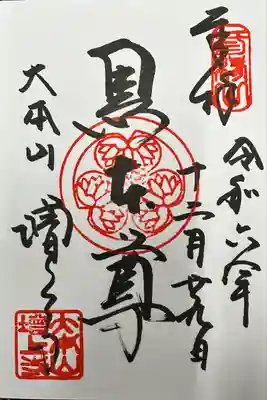 奉拝
令和六年
十二月廿九日
黒本尊
大本山
増上寺
大本山
増上寺